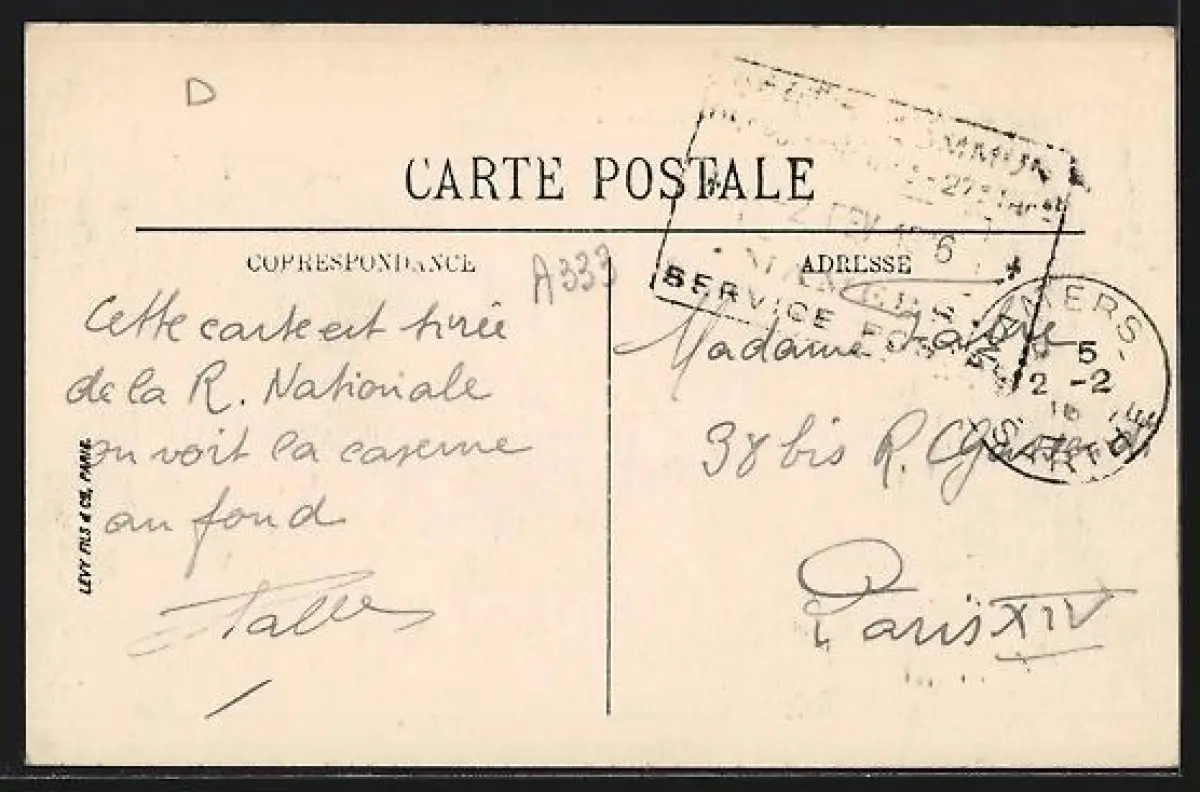 D
CARTE POSTALE
CORRESPONDANCE
ADRESSE
A333
Cette carte est tirée
de la R. Nationale
on voit la caserne
au fond
LEVY FILS & CIE, PARIS.
COMMUN
2 FEV 1916
MAMERS
SERVICE POSTAL
MAMERS
5
2 -2
16
SARTHE
Madame
38 bis R.
Paris XIV